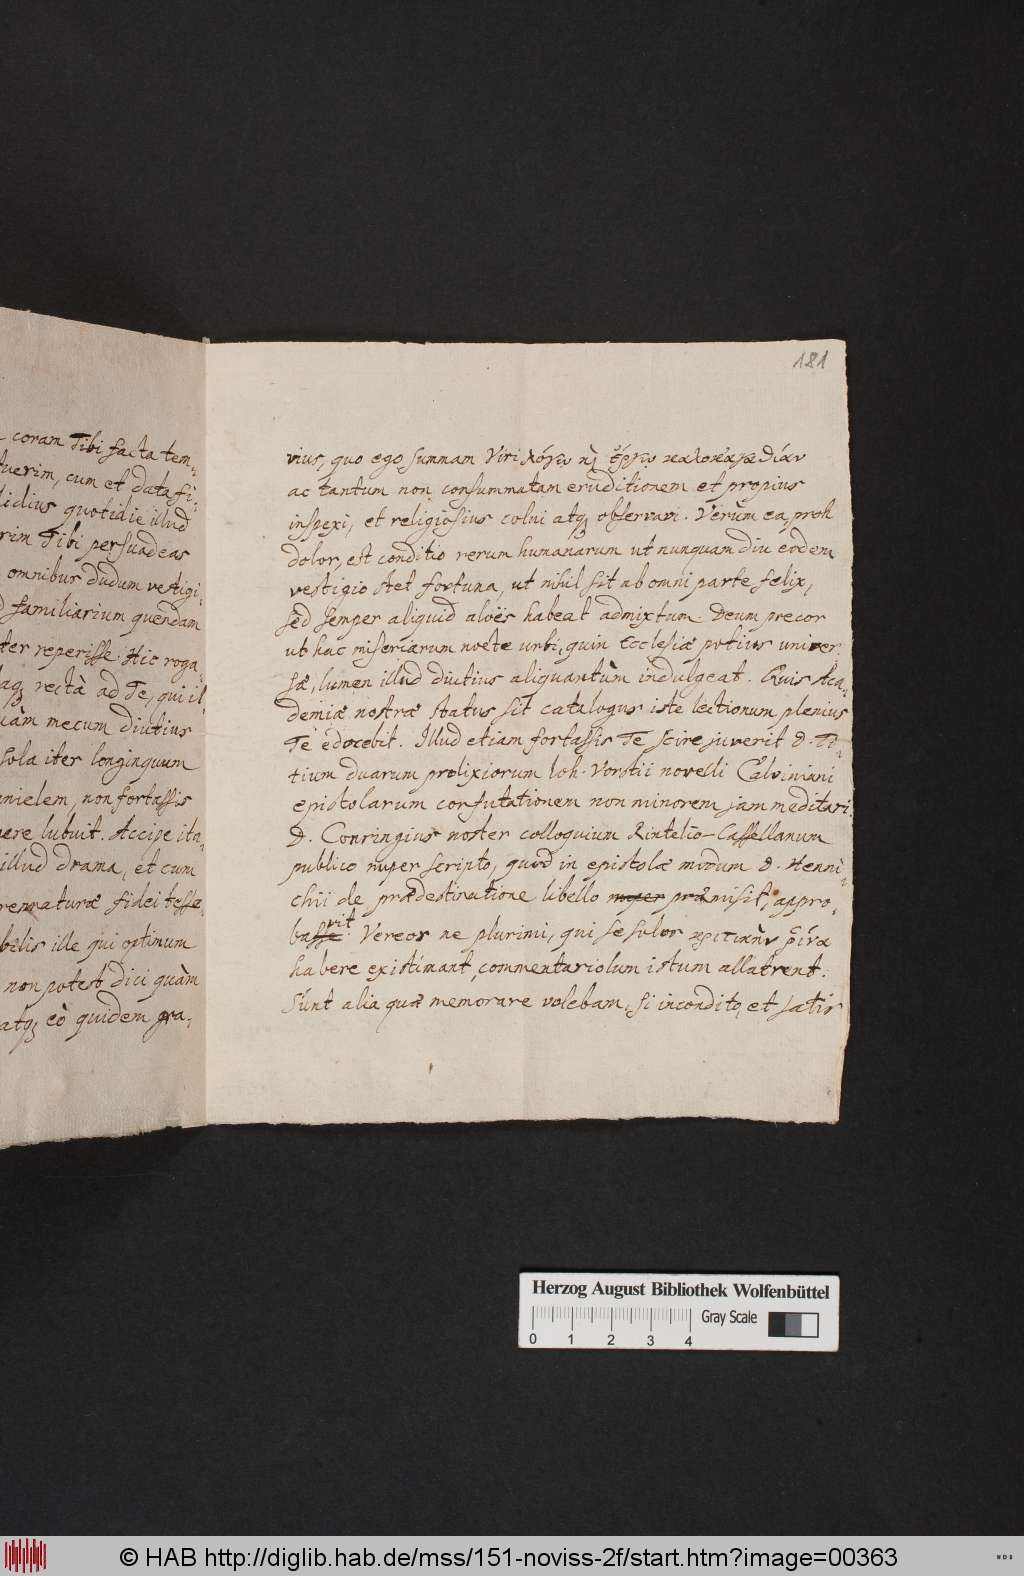 coram Tibi facta tem-
tuerim, cum et data fi-
lidius quotidie illud
rim Tibi persuadeas
omnibus dudum vestigi-
d familiarium quendam
ter reperisse. Hic roga-
aq; rectà ad Te, qui il-
uàm mecum diutius
sola iter longinquum
nielem, non fortassis
pere lubuit. Accipe ita-
illud drama, et cum
rennaturæ fidei tesse-
bilis ille qui optimum
non potest dici quàm
atq; eò quidem gra-
181
vius, quo ego summam Viri λόγῳ κ̀ ἔργῳ καλοκἀγαθίαν
ac tantum non consummatam eruditionem et propius
inspexi, et religiosius colui atq; observavi. Verùm ea, proh
dolor, est conditio rerum humanarum ut nunquam diu eodem
vestigio stet fortuna, ut nihil sit ab omni parte felix,
sed semper aliquid aloës habeat admixtum. Deum precor
ut hac miseriarum nocte urbi, quin Ecclesiæ potius univer-
sæ, lumen illud diutius aliquantùm indulgeat. Quis Aca-
demiæ nostræ status sit catalogus iste lectionum plenius
Te edocebit. Illud etiam fortassis Te scire juverit D. Ti-
tium duarum prolixiorum Joh. Vorstii novelli Calviniani
epistolarum confutationem non minorem jam meditari.
D. Conringius noster colloquium Rintelio-Cassellanum
publico nuper scripto, quod in epistolæ modum D. Henni-
chii de prædestinatione libello nuper præmisit, appro-
basse vit. Vereor ne plurimi, qui se solos κριτικὴν ῥῖνα
habere existimant, commentariolum istum allatrent.
Sunt alia quæ memorare volebam, si incondito, et satis
Herzog August Bibliothek Wolfenbüttel
0 1 2 3 4
Gray Scale
© HAB http://diglib.hab.de/mss/151-noviss-2f/start.htm?image=00363